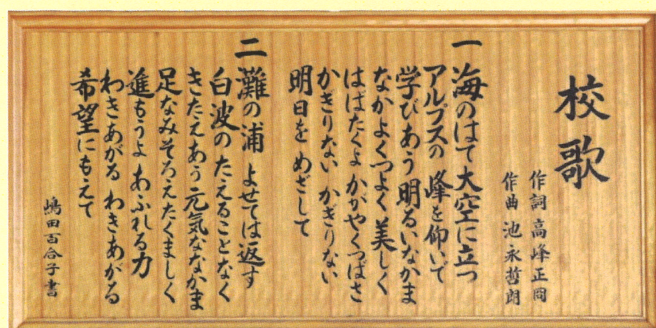 校歌
作詞 高峰正岡
作曲 池永哲朗
一 海のはて 大空に立つ
アルプスの 峰を仰いで
学びあう 明るいなかま
なかよく つよく 美しく
はばたくよ かがやくつばさ
かぎりない かぎりない
明日を めざして
二 灘の浦 よせては返す
白波の たえることなく
きたえあう 元気ななかま
足なみそろえ たくましく
進もうよ あふれる力
わきあがる わきあがる
希望に もえて
嶋田百合子書